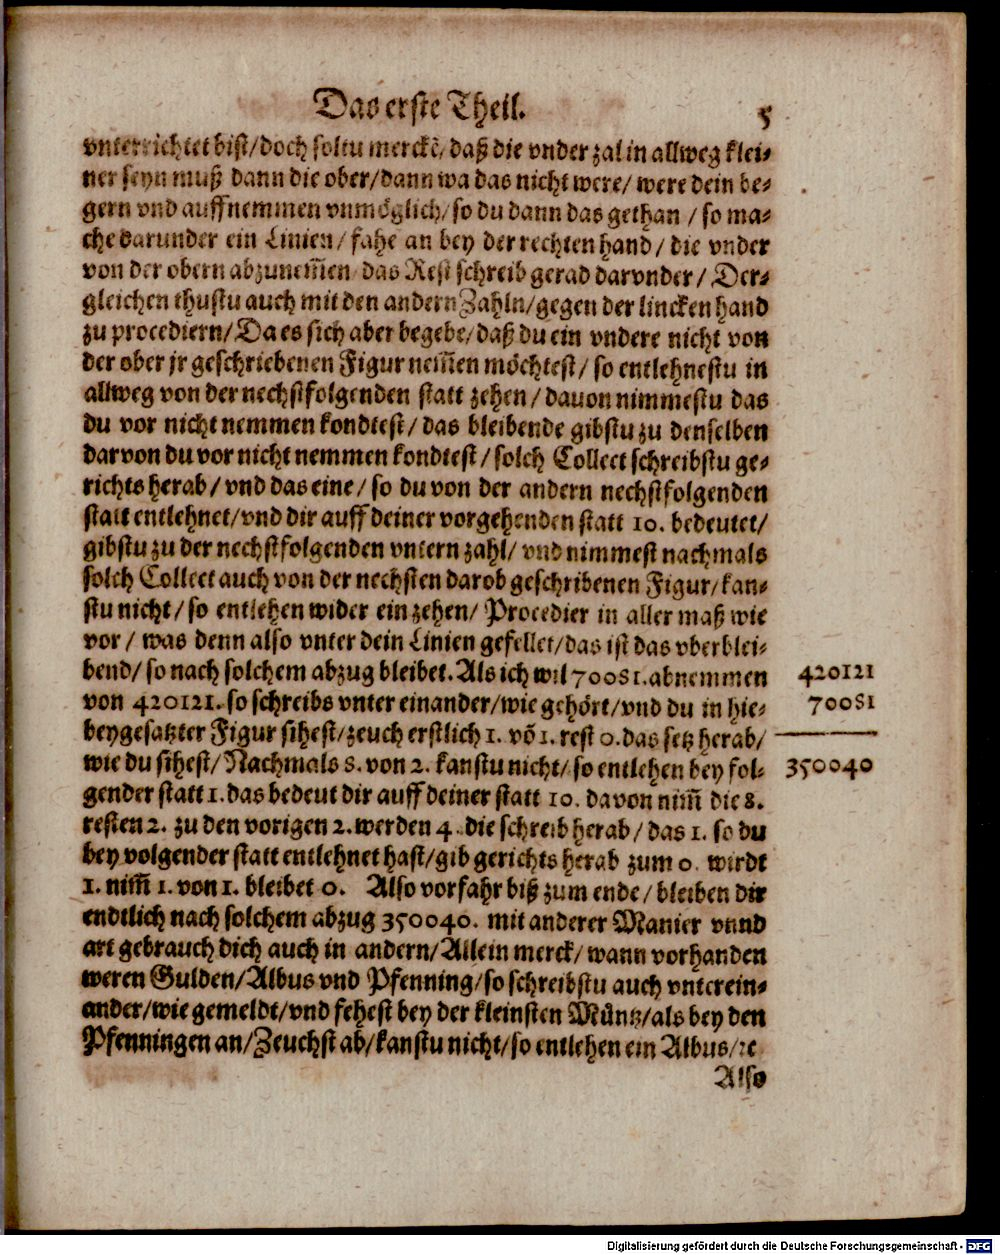 Das erste Theil. 5
vnterrichtet bist/doch soltu merckẽ/daß die vnder zal in allweg klei-
ner seyn muß dann die ober/dann wa das nicht were/ were dein be-
gern vnd auffnemmen vnmöglich/so du dann das gethan / so ma-
che darunder ein Linien/ fahe an bey der rechten hand/ die vnder
von der obern abzunem̃en das Rest schreib gerad darvnder/ Der-
gleichen thustu auch mit den andern Zahln/gegen der lincken hand
zu procediern/Da es sich aber begebe/daß du ein vndere nicht von
der ober jr geschriebenen Figur nem̃en möchtest/ so entlehnestu in
allweg von der nechstfolgenden statt zehen/ dauon nimmestu das
du vor nicht nemmen kondtest/ das bleibende gibstu zu denselben
darvon du vor nicht nemmen kondtest/solch Collect schreibstu ge-
richts herab/vnd das eine/ so du von der andern nechstfolgenden
statt entlehnet/vnd dir auff deiner vorgehenden statt 10. bedeutet/
gibstu zu der nechstfolgenden vntern zahl/ vnd nimmest nachmals
solch Collect auch von der nechsten darob geschribenen Figur/kan-
stu nicht/so entlehen wider ein zehen/ Procedier in aller maß wie
vor/ was denn also vnter dein Linien gefellet/das ist das vberblei-
bend/so nach solchem abzug bleibet. Als ich wil 70081.abnemmen
von 420121. so schreibs vnter einander/wie gehört/vnd du in hie-
beygesatzter Figur sihest/zeuch erstlich 1. võ 1. rest 0.das setz herab/
wie du sihest/Nachmals 8. von 2. kanstu nicht/so entlehen bey fol-
gender statt 1.das bedeut dir auff deiner statt 10. davon nim̃ die 8.
resten 2. zu den vorigen 2.werden 4. die schreib herab/das 1. so du
bey volgender statt entlehnet hast/gib gerichts herab zum 0. wirdt
1. nim̃ 1. von 1. bleibet 0. Also vorfahr biß zum ende/bleiben dir
endtlich nach solchem abzug 350040. mit anderer Manier vnnd
art gebrauch dich auch in andern/Allein merck/wann vorhanden
weren Gulden/Albus vnd Pfenning/so schreibstu auch vnterein-
ander/wie gemeldt/vnd fehest bey der kleinsten Müntz/als bey den
Pfenningen an/Zeuchst ab/kanstu nicht/so entlehen ein Albus/ꝛc
Also
420121
70081
350040
Digitalisierung gefördert durch die Deutsche Forschungsgemeinschaft - DFG